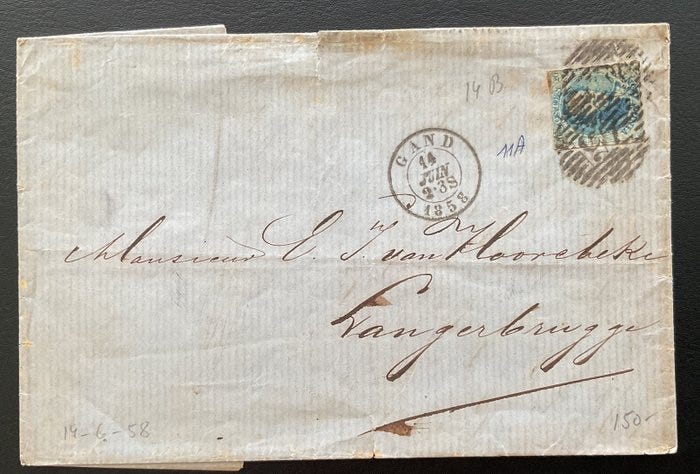 14 B
11A
GAND
14
JUIN
2·3S
1858
Monsieur E. J. van Hoorebeke
Langerbrugge
14-6-58
150-